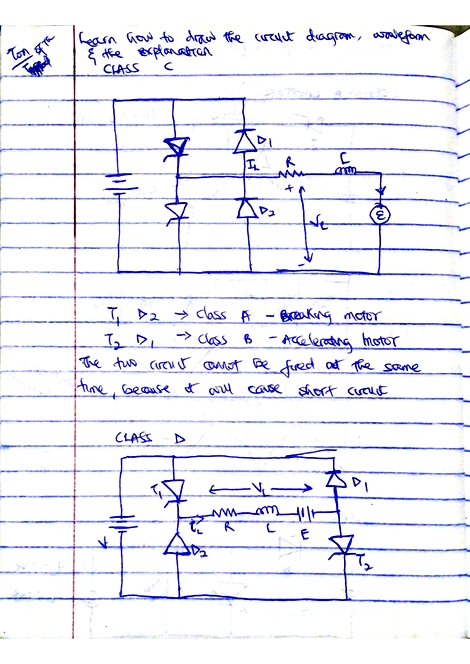 Learn how to draw the circuit diagram, waveform
& the explanation
Ton of
CLASS C
D1
IL
R
L
+
VL
E
D2
-
T1 D2 → class A - Breaking motor
T2 D1 → class B - Accelerating motor
The two circuit cannot be fired at the same
time, because it will cause short circuit
CLASS D
T1
VL
D1
iL
R
L
E
V
D2
T2